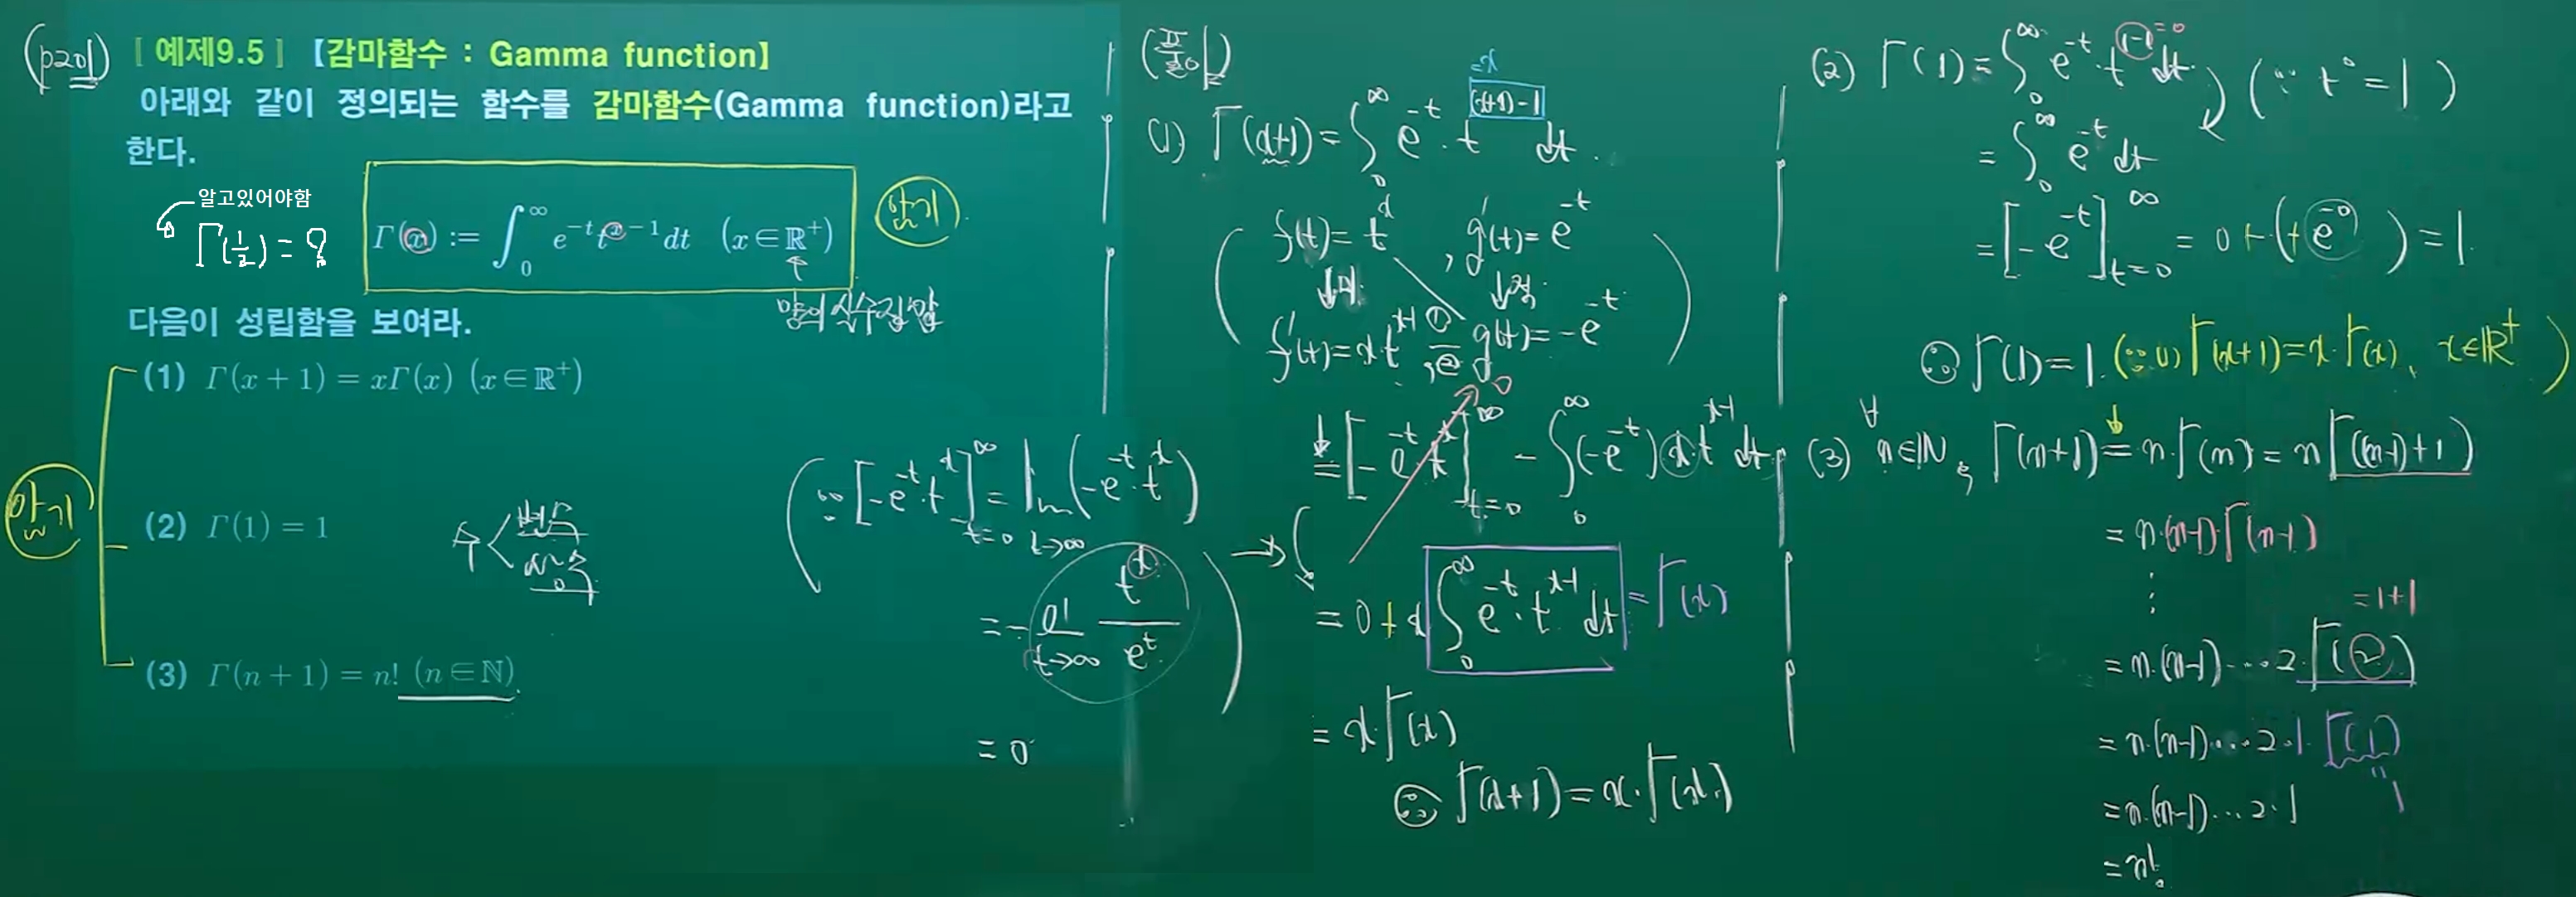 (p201) [ 예제9.5 ] 【감마함수 : Gamma function】
아래와 같이 정의되는 함수를 감마함수(Gamma function)라고
한다.
알고있어야함
Γ(1/2) = ?
Γ(x) := ∫_0^∞ e^{-t} t^{x-1} dt (x∈ℝ^+)
암기
양의 실수 집합
다음이 성립함을 보여라.
암기
(1) Γ(x+1) = xΓ(x) (x∈ℝ^+)
(2) Γ(1) = 1
(3) Γ(n+1) = n! (n∈ℕ)
(∵ [-e^{-t}·t^x]_{t=0}^∞ = lim_{t→∞} (-e^{-t}·t^x)
= - lim_{t→∞} t^x / e^t ) →
= 0
(풀이)
(1) Γ(x+1) = ∫_0^∞ e^{-t}·t^{(x+1)-1} dt.
=x
( f(t) = t^x , g'(t) = e^{-t}
↓미. ↓적.
f'(t) = x·t^{x-1} , g(t) = -e^{-t} )
① ②
= [-e^{-t} t^x]_{t=0}^∞ - ∫_0^∞ (-e^{-t}) x·t^{x-1} dt
0
= 0 + x ∫_0^∞ e^{-t}·t^{x-1} dt = Γ(x)
= x·Γ(x)
∴ Γ(x+1) = x·Γ(x).
(2) Γ(1) = ∫_0^∞ e^{-t}·t^{1-1} dt. (∵ t^0 = 1)
=0
= ∫_0^∞ e^{-t} dt
= [-e^{-t}]_{t=0}^∞ = 0 + (+e^{-0}) = 1.
∴ Γ(1) = 1. (∵(1) Γ(x+1) = x·Γ(x), x∈ℝ^+)
(3) ∀n∈ℕ, Γ(n+1) = n·Γ(n) = n Γ((n-1)+1)
= n·(n-1)·Γ(n-1)
⋮
=1+1
= n·(n-1)·…·2·Γ(2)
= n·(n-1)·…·2·1·Γ(1)
" 1
= n·(n-1)…2·1
= n!.